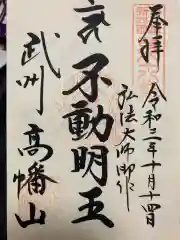 奉拝
令和三年十月十四日
弘法大師御作
不動明王
武州
高幡山